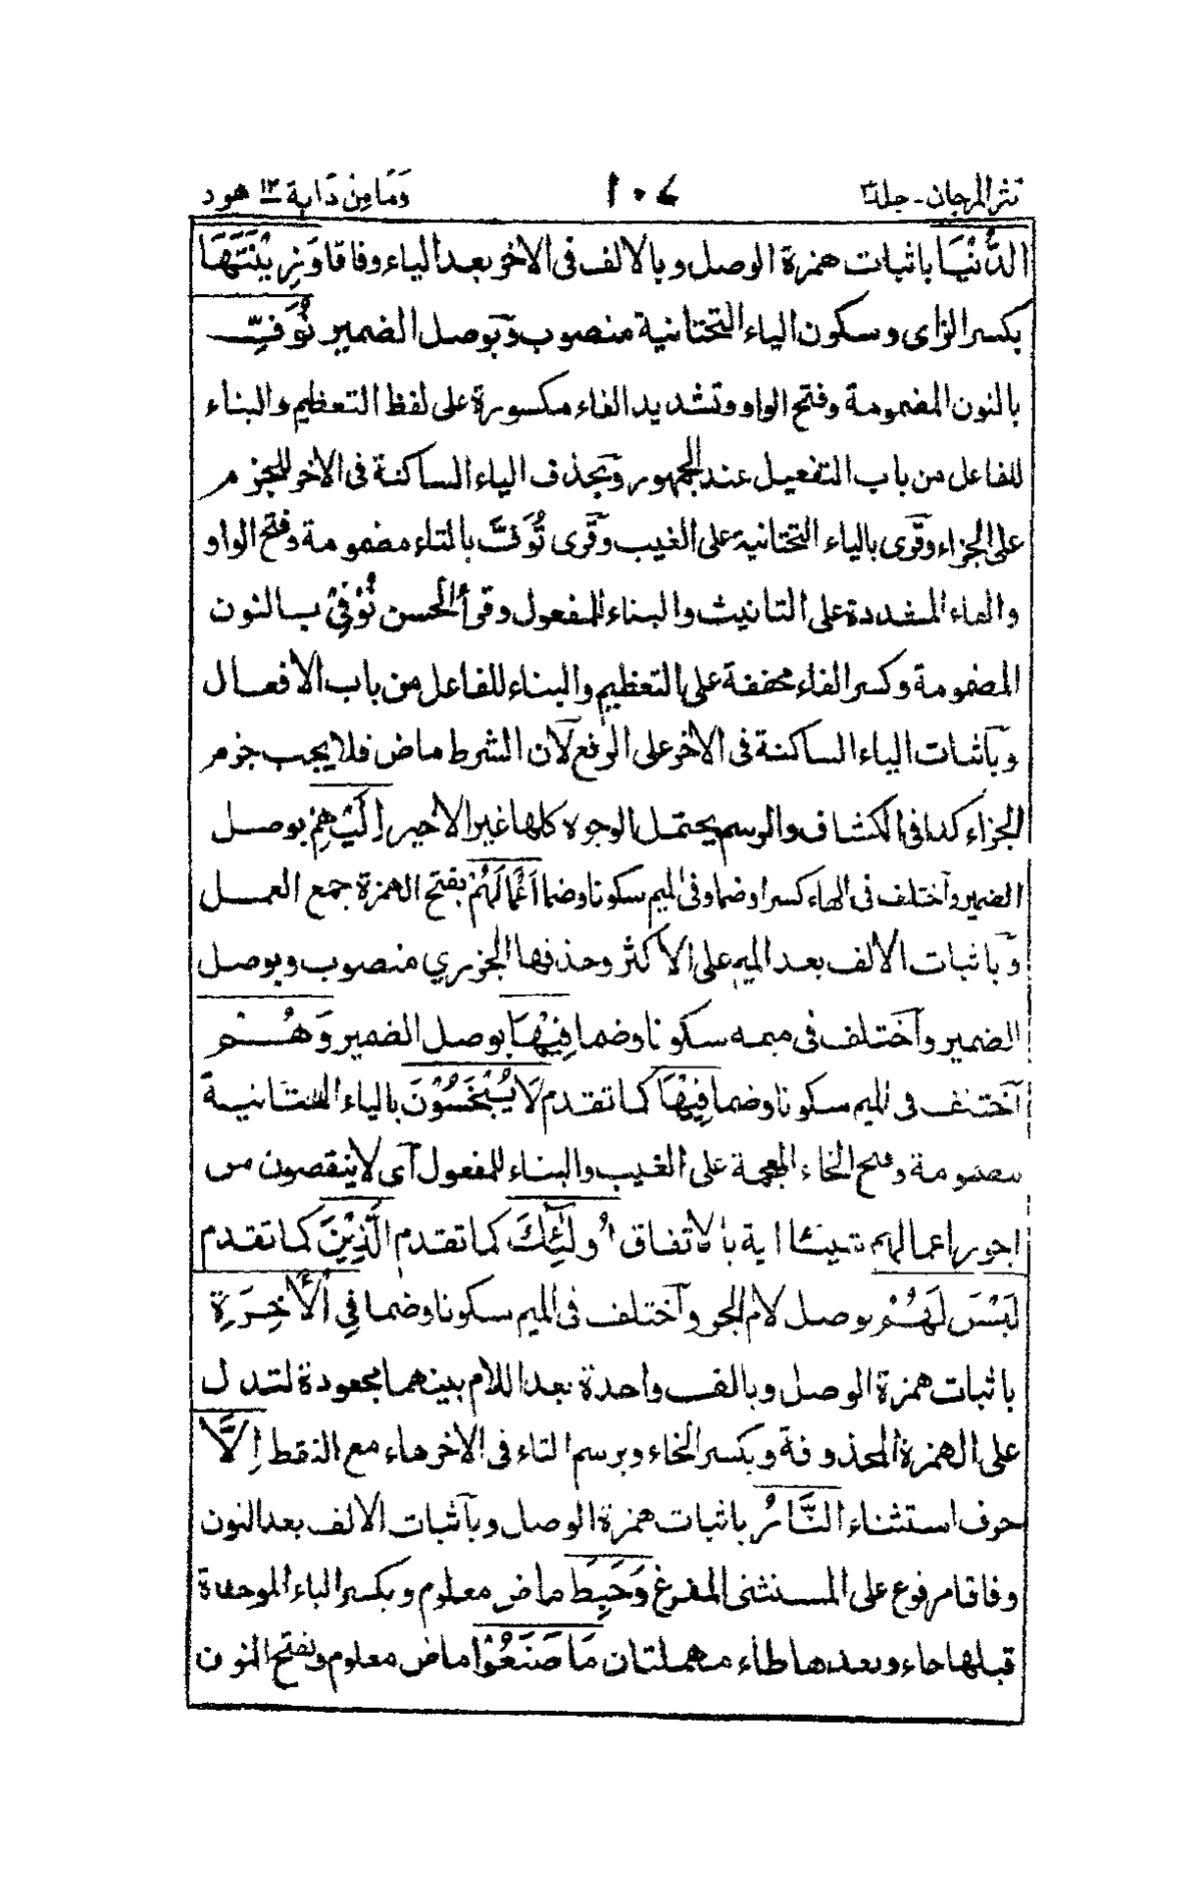 نثر المرجان - جلد٣ ١٠٧ وَمَا مِنْ دَابة ١٢ هود
الدُّنْيَا باثبات همزة الوصل وبالالف فى الاخر بعد الياء وفاقا وَزِيْنَتَهَا
بكسر الزاى وسكون الياء التحتانية منصوب وبوصل الضمير نُوَفِّ
بالنون المضمومة وفتح الواو وتشديد الفاء مكسورة على لفظ التعظيم والبناء
للفاعل من باب التفعيل عند الجمهور وبحذف الياء الساكنة فى الاخر للجزم
على الجزاء وقرى بالياء التحتانية على الغيب وقرى تُوَفَّ بالتاء مضمومة وفتح الواو
والفاء المشددة على التانيث والبناء للمفعول وقرأ الحسن نُوْفِيْ بالنون
المضمومة وكسر الفاء مخففة على التعظيم والبناء للفاعل من باب الافعال
وباثبات الياء الساكنة فى الاخر على الرفع لان الشرط ماض فلا يجب جزم
الجزاء كذا فى الكشاف والرسم يحتمل الوجوه كلها غير الاخير اِلَيْهِمْ بوصل
الضمير واختلف فى الهاء كسرا وضما وفى الميم سكونا وضما اَعْمَالَهُمْ بفتح الهمزة جمع العمل
وباثبات الالف بعد الميم على الاكثر وحذفها الجزرى منصوب وبوصل
الضمير واختلف فى ميمه سكونا وضما فِيْهَا بوصل الضمير وَهُمْ
اختلف فى الميم سكونا وضما فِيْهَا كما تقدم لَا يُبْخَسُوْنَ بالياء التحتانية
مضمومة وفتح الخاء المعجمة على الغيب والبناء للمفعول اى لا ينقصون من
اجور اعمالهم شيئا اية بالاتفاق اُولٰٓئِكَ كما تقدم الَّذِيْنَ كما تقدم
لَيْسَ لَهُمْ بوصل لام الجر واختلف فى الميم سكونا وضما فِى الْاٰخِرَةِ
باثبات همزة الوصل وبالف واحدة بعد اللام بينهما مجعودة لتدل
على الهمزة المحذوفة وبكسر الخاء وبرسم التاء فى الاخر هاء مع النقط اِلَّا
حرف استثناء النَّارُ باثبات همزة الوصل وباثبات الالف بعد النون
وفاقا مرفوع على المستثنى المفرغ وَحَبِطَ ماض معلوم وبكسر الباء الموحدة
قبلها حاء وبعدها طاء مهملتان مَا صَنَعُوْا ماض معلوم وبفتح النون